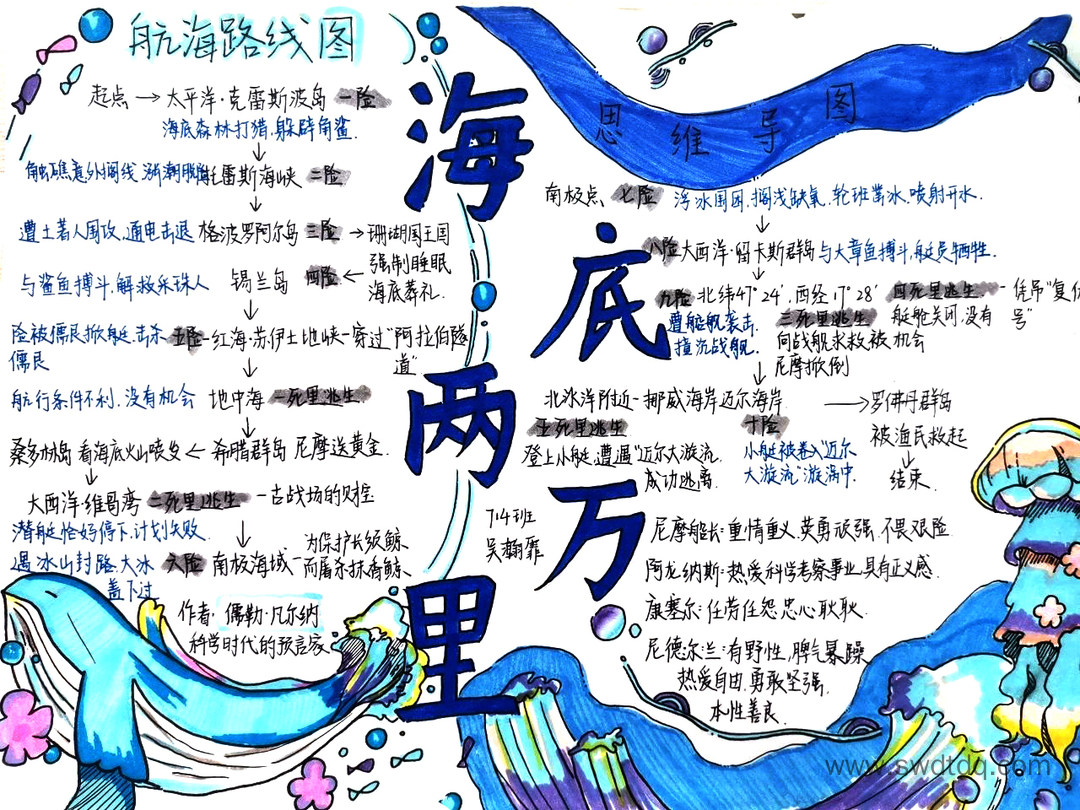 航海路线图
起点→太平洋·克雷斯波岛 一险
海底森林打猎,躲避角鲨.
触礁意外搁线.涨潮脱险 托雷斯海峡 二险
遭土著人围攻,通电击退 格波罗阿尔岛 三险→珊瑚国王国
强制睡眠
海底葬礼.
与鲨鱼搏斗,解救采珠人 锡兰岛 四险←
险被儒艮掀艇,击杀
儒艮
五险-红海·苏伊士地峡-穿过"阿拉伯隧
道"
航行条件不利,没有机会 地中海 一死里逃生
桑多林岛 看海底火山喷发←希腊群岛 尼摩送黄金.
大西洋·维哥湾 二死里逃生-古战场的贝挖
潜艇恰好停下,计划失败.
遇冰山封路,大冰
盖下过
六险 南极海域-为保护长须鲸
而屠杀抹香鲸
作者·儒勒·凡尔纳
科学时代的预言家
海底两万里
714班
吴翰霏
思维导图
南极点. 七险 浮冰围困,搁浅缺氧,轮班凿冰,喷射开水.
八险大西洋·留卡斯群岛 与大章鱼搏斗,艇员牺牲.
九险 北纬47°24′.西经17°28′
遭艇舰袭击.
撞沉战舰.
三死里逃生
向战舰求救被
尼摩掀倒
四死里逃生
艇舱关闭,没有
机会
-凭吊"复仇
号"
北冰洋附近-挪威海岸迈尔海岸. →罗佛丹群岛
五死里逃生
登上小艇,遭遇"迈尔大漩流.
成功逃离.
十险
小艇被卷入"迈尔
大漩流"漩涡中.
被渔民救起
结束.
尼摩船长·重情重义,英勇顽强,不畏艰险
阿龙纳斯:热爱科学考察事业,具有正义感.
康塞尔:任劳任怨,忠心耿耿.
尼德尔·兰:有野性,脾气暴躁
热爱自由,勇敢坚强.
本性善良.
www.swdtdq.com